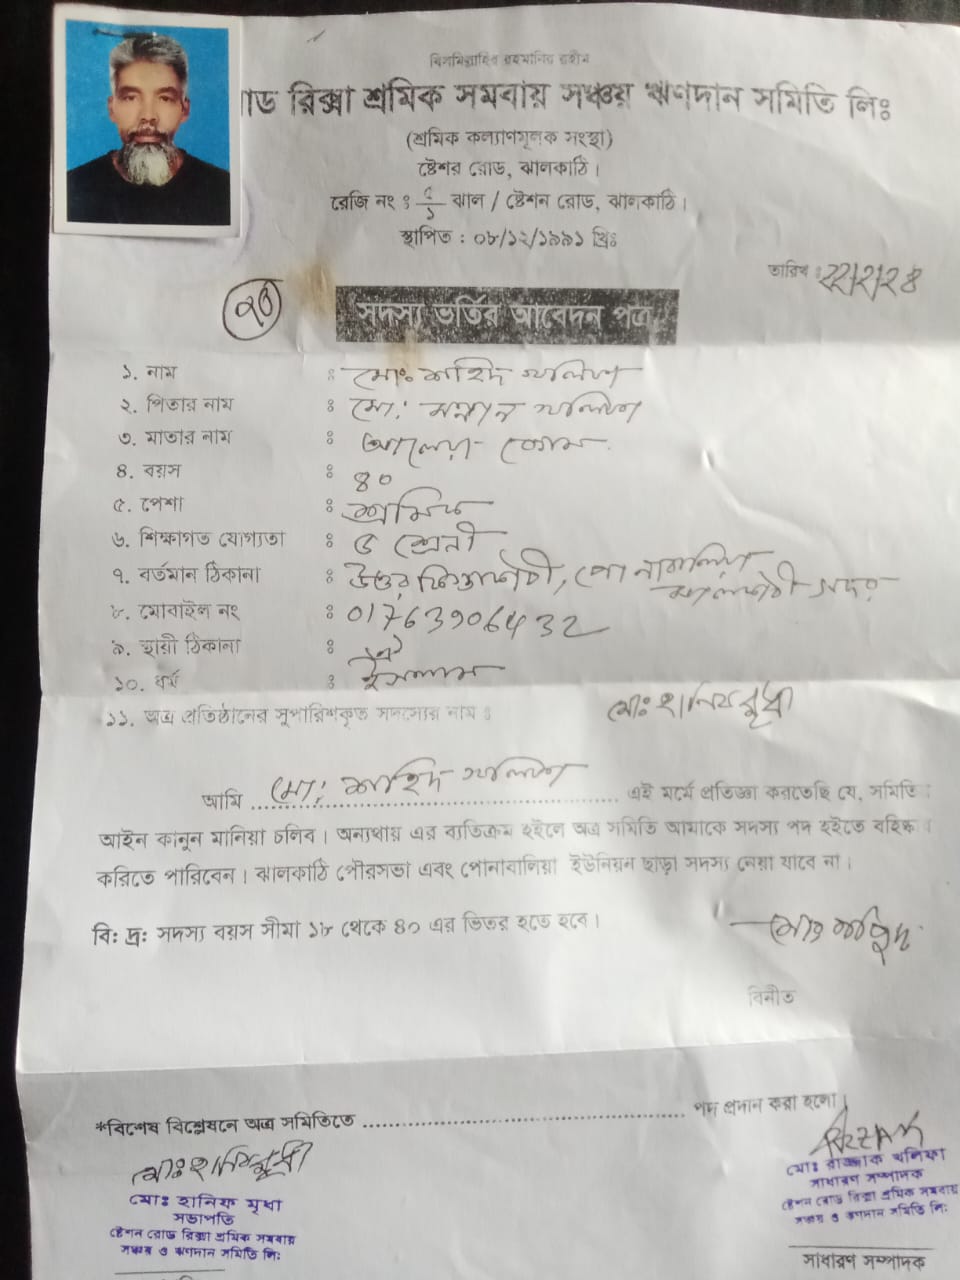 বিসমিল্লাহির রহমানির রহীম
রোড রিক্সা শ্রমিক সমবায় সঞ্চয় ঋণদান সমিতি লিঃ
(শ্রমিক কল্যাণমূলক সংস্থা)
ষ্টেশন রোড, ঝালকাঠি।
রেজি নং ঃ ঝাল / ষ্টেশন রোড, ঝালকাঠি।
স্থাপিত : ০৮/১২/১৯৯১ খ্রিঃ
তারিখ ঃ ২২/২/২৪
সদস্য ভর্তির আবেদন পত্র
১. নাম ঃ মোঃ শাহিদ খলিফা
২. পিতার নাম ঃ মোঃ মন্নান খলিফা
৩. মাতার নাম ঃ আলেয়া বেগম
৪. বয়স ঃ ৪০
৫. পেশা ঃ শ্রমিক
৬. শিক্ষাগত যোগ্যতা ঃ ৫ শ্রেনী
৭. বর্তমান ঠিকানা ঃ উত্তর পোনাবালিয়া
ঝালকাঠী সদর
৮. মোবাইল নং ঃ 01763906432
৯. স্থায়ী ঠিকানা ঃ ঐ
১০. ধর্ম ঃ ইসলাম
১১. অত্র প্রতিষ্ঠানের সুপারিশকৃত সদস্যের নাম ঃ মোঃ হানিফ মৃধা
আমি মোঃ শাহিদ খলিফা এই মর্মে প্রতিজ্ঞা করতেছি যে, সমিতি
আইন কানুন মানিয়া চলিব। অন্যথায় এর ব্যতিক্রম হইলে অত্র সমিতি আমাকে সদস্য পদ হইতে বহিষ্কা
করিতে পারিবেন। ঝালকাঠি পৌরসভা এবং পোনাবালিয়া ইউনিয়ন ছাড়া সদস্য নেয়া যাবে না।
বি: দ্র: সদস্য বয়স সীমা ১৮ থেকে ৪০ এর ভিতর হতে হবে।
মোঃ শহিদ
বিনীত
*বিশেষ বিশ্লেষনে অত্র সমিতিতে ........ পদ প্রদান করা হলো।
মোঃ হানিফ মৃধা
মোঃ হানিফ মৃধা
সভাপতি
ষ্টেশন রোড রিক্সা শ্রমিক সমবায়
সঞ্চয় ও ঋণদান সমিতি লি:
RAZZAK
মোঃ রাজ্জাক খলিফা
সাধারণ সম্পাদক
ষ্টেশন রোড রিক্সা শ্রমিক সমবায়
সঞ্চয় ও ঋণদান সমিতি লি:
সাধারণ সম্পাদক